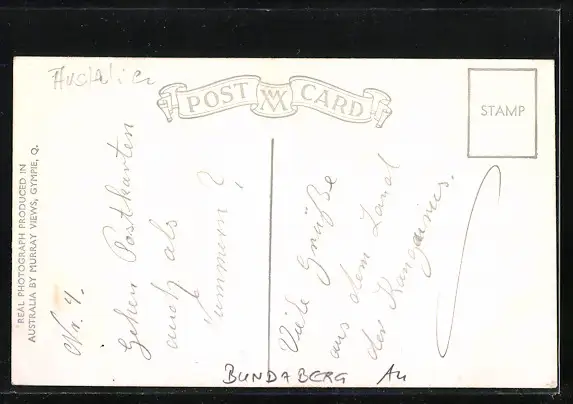 Australien
POST CARD
STAMP
REAL PHOTOGRAPH PRODUCED IN
AUSTRALIA BY MURRAY VIEWS, GYMPIE, Q.
Nr. 4.
Gehen Postkarten
auch als
Nummern?
Viele Grüße
aus dem Land
der Kangaruus.
BUNDABERG AU